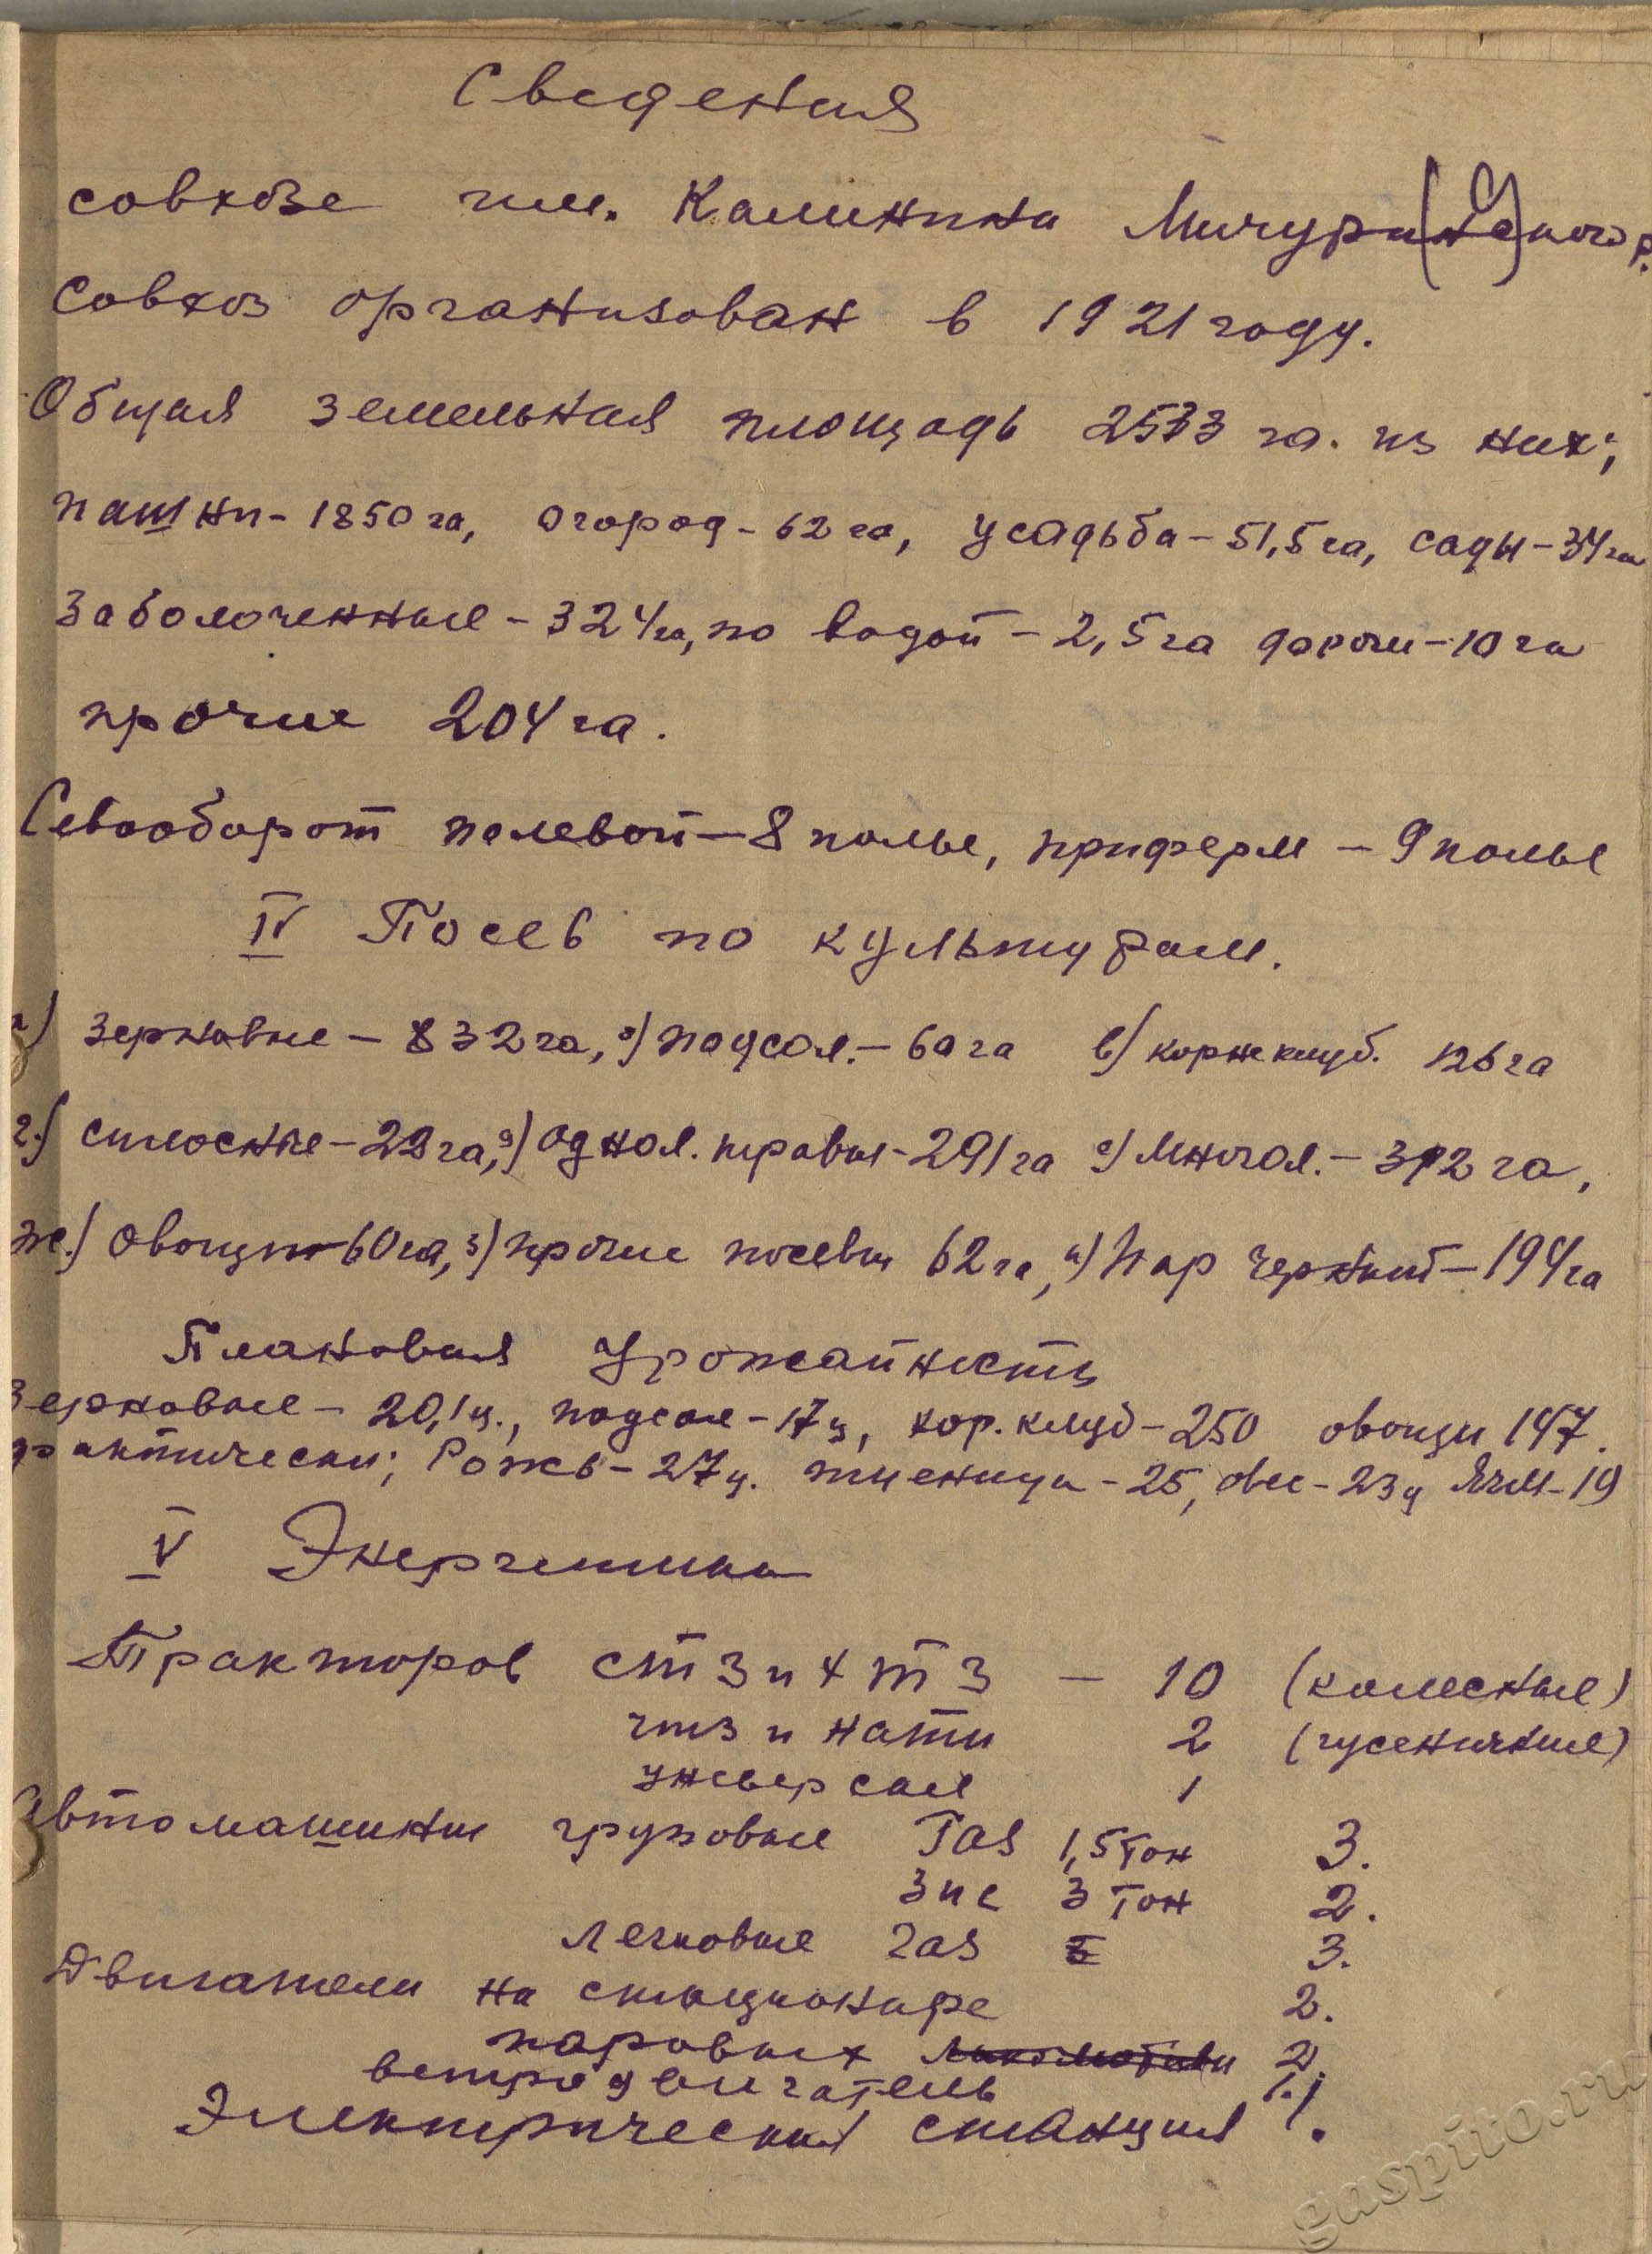 Сведения
совхозе им. Калинина Мичуринского р.
Совхоз организован в 1921 году.
Общая земельная площадь 2533 га. из них;
пашни - 1850 га, огород - 62 га, усадьба - 51,5 га, сады - 34 га
Заболоченные - 324 га, по водой - 2,5 га дороги - 10 га
прочие 204 га.
Севооборот полевой - 8 полье, приферм - 9 полье
IV Посев по культурам.
а) зерновые - 832 га, б) подсол. - 60 га в) корнеклуб. 126 га
г.) силосные - 22 га, д) однол. травы - 291 га е) Многол. - 312 га,
ж.) Овощи 60 га, з) прочие посевы 62 га, и) Пар черный - 194 га
Плановая Урожайность
Зерновые - 20,1 ц., подсол - 17 ц, кор. клуб - 250 овощи 147.
фактически; Рожь - 27 ц. пшеница - 25, овес - 23 ц Ячм - 19
V Энергетика
Тракторов СТЗ и ХТЗ - 10 (колесные)
ЧТЗ и НАТИ 2 (гусеничные)
универсал 1
Автомашины грузовые Газ 1,5 тон 3.
Зис 3 тон 2.
легковые Газ 3.
Двигатели на стационаре 2.
паровых локомотиви 2.
ветродвигатель 1.
Электрическая станция 1.
gaspito.ru